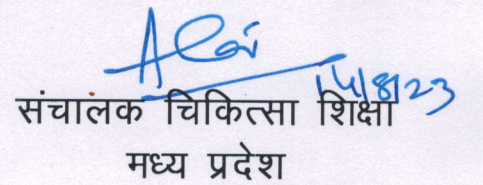 14/8/23
संचालक चिकित्सा शिक्षा
मध्य प्रदेश